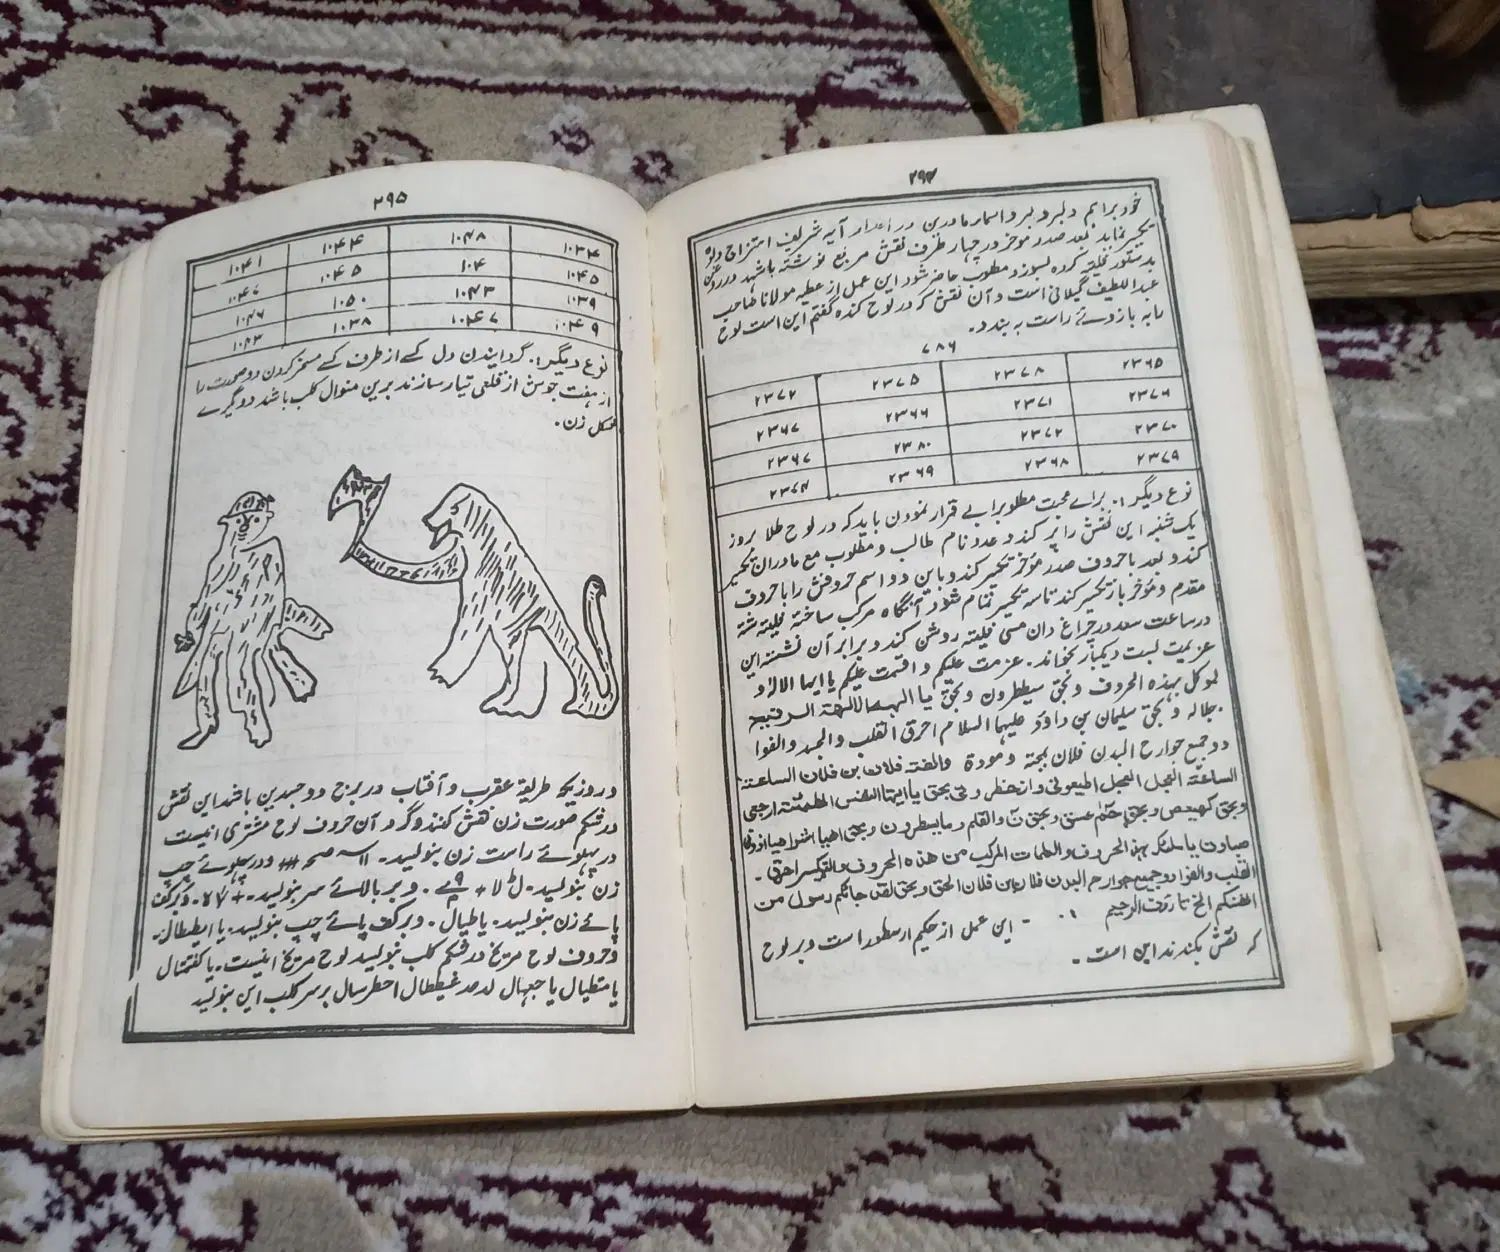 ۲۹۴
خود برابم دلبر و لبر و اسمار مادرین در اعداد آیه شریف امتزاج داده
تکسیر نماید بعد صدر موخر در چہار طرف نقش مربع نوشتہ باشد در روغن
بدستور فلیتہ کردہ بسوزد مطلوب حاضر شود این عمل از عطیہ مولانا صاحب
عبداللطیف گیلانی است و آن نقش کہ در لوح کندہ گفتم این است لوح
را بہ بازوئے راست بہ بندد .
۷۸۶
۲۳۷۲ ۲۳۷۵ ۲۳۷۸ ۲۳۶۵
۲۳۶۷ ۲۳۶۶ ۲۳۷۱ ۲۳۷۶
۲۳۶۷ ۲۳۸۰ ۲۳۷۲ ۲۳۷۰
۲۳۷۴ ۲۳۶۹ ۲۳۶۸ ۲۳۷۹
نوع دیگر :. برائے محبت مطلوب را بے قرار نمودن باید کہ در لوح طلا بروز
یک شنبہ این نقش را پر کند و عدد نام طالب و مطلوب مع مادران تکسیر
کند و بعد با حروف صدر مؤخر تکسیر کند و باین دو اسم حروفش را با حروف
مقدم و مؤخر باز تکسیر کند تا سہ تکسیر تمام شود آنگاہ مرکب ساختہ فلیتہ شتہ
در ساعت سعد در چراغ دان مسی فلیتہ روشن کند و برابر آن نشستہ این
عزیمت بست و یکبار بخواند . عزمت علیکم و اقسمت علیکم یا ایہا الالہ و
لوکل بہذہ الحروف و بحق سیططرون و بحق یا الہ الالہة الرفیع
جلالہ و بحق سلیمان بن داؤد علیہما السلام احرق القلب والجسد والفوا
دوجمیع جوارح البدن فلان بحبتہ ومودة والفتہ فلان بن فلان الساعتہ
الساعتہ العجل العجل اطیعونی وانحظرونی بحق یا ایتہا النفس المطمئنة ارجعی
وبحق کہیعص وبحق حم عسق وبحق ن والقلم وما یسطرون وبحق اہیا اشراہیا اذونی
صباوت یا ملئکہ بہذا الحروف والکلمات المرکب من ہذہ الحروف والتکسیر احرق .
القلب والفواد جمیع جوارح البدن فلان بن فلان الحق وبحق لقد جائکم رسول من
انفسکم الخ تا رؤف الرحیم . این عمل از حکیم ارسطور است و بر لوح
کہ نقش بکندند این است .
۲۹۵
۱۰۴۱ ۱۰۴۴ ۱۰۴۸ ۱۰۳۴
۱۰۴۷ ۱۰۴۵ ۱۰۴ ۱۰۴۵
۱۰۴۶ ۱۰۵۰ ۱۰۴۳ ۱۰۳۹
۱۰۴۳ ۱۰۳۸ ۱۰۴۷ ۱۰۴۹
نوع دیگر :. گردایندن دل کسے از طرف کسے مسخر کردن دو صورت را
از ہفت جوش از قلعی تیار سازند برین منوال کلب باشد دوگیرے
شکل زن .
در روزیکہ طریقہ عقرب و آفتاب در برج ذو جسدین باشد این نقش
در شکم صورت زن نقش کنند و گرد آن حروف لوح مشتری اینست
در پہلوئے راست زن بنولیسد . ودر پہلوئے چپ
زن بنولیسد . وبر بالائے سر بنولیسد . وبر کف
پائے زن بنولیسد . یا طیال . وبر کف پائے چپ بنولیسد . یا ایطیطال .
وحروف لوح مریخ در شکم کلب بنولیسد لوح مریخ اینست . یا کفتمتال
یا متطیال یا جہال لدمد غیططال احطرسال بر سر کلب این بنولیسد